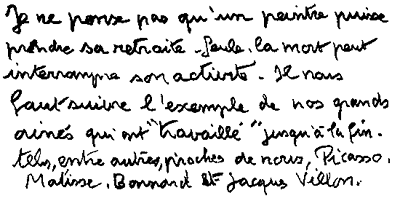 Je ne pense pas qu'un peintre puisse
prendre sa retraite. Seule, la mort peut
interrompre son activité. Il nous
faut suivre l'exemple de nos grands
ainés qui ont "travaillé" jusqu'à la fin.
tels, entre autres, proches de nous, Picasso.
Matisse. Bonnard et Jacques Villon.